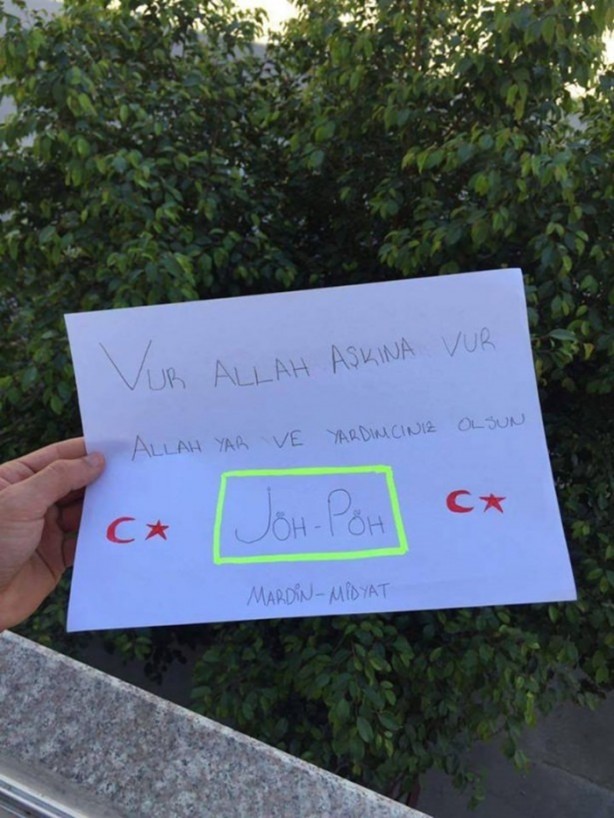 VUR ALLAH AŞKINA VUR
ALLAH YAR VE YARDIMCINIZ OLSUN
JÖH-PÖH
MARDİN-MİDYAT